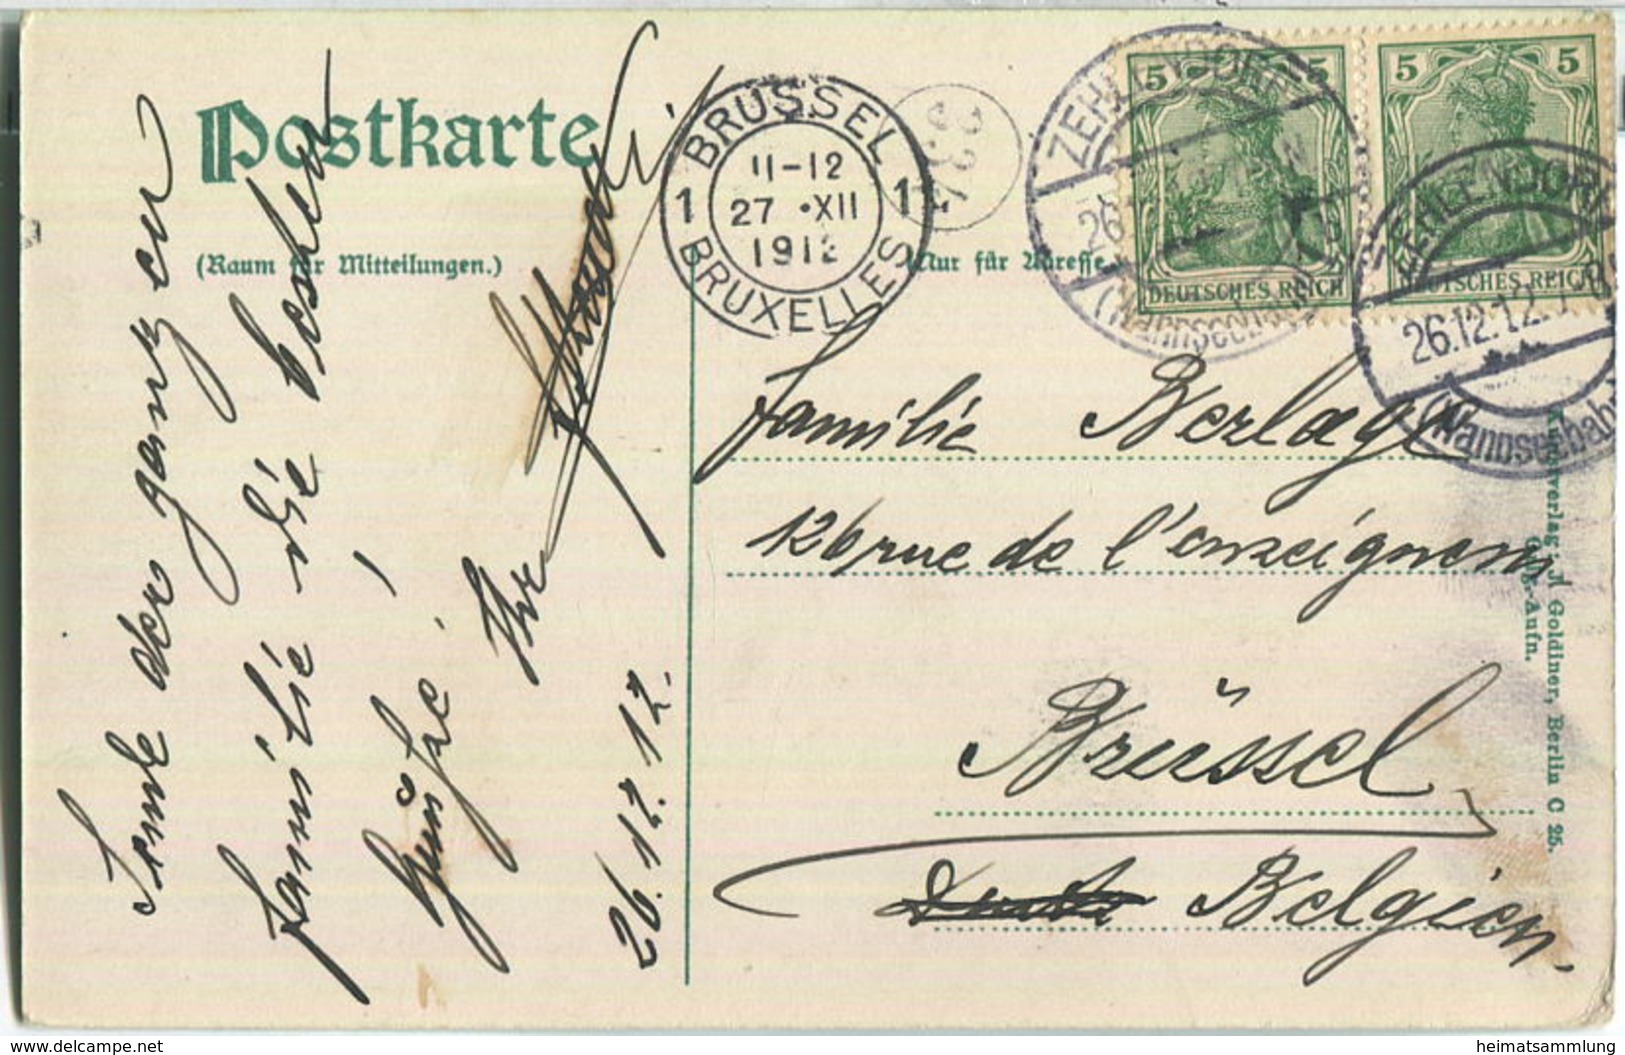 Postkarte
(Raum für Mitteilungen.)
Nur für Adresse.
Sende der ganzen
Familie die besten
Grüße!
Ihr
26.12.12.
BRUSSEL
11-12
1 27 •XII 1
1912
BRUXELLES
337
ZEHLENDORF
26
(Wannseebahn)
5 5
DEUTSCHES REICH
5 5
DEUTSCHES REICH
ZEHLENDORF
26.12.12.
(Wannseebahn)
Familie Berlage
126 rue de l'enzeignem
Brüssel
Belgien
Kunstverlag J. Goldiner, Berlin C 25.
Orig.-Aufn.
www.delcampe.net
heimatsammlung